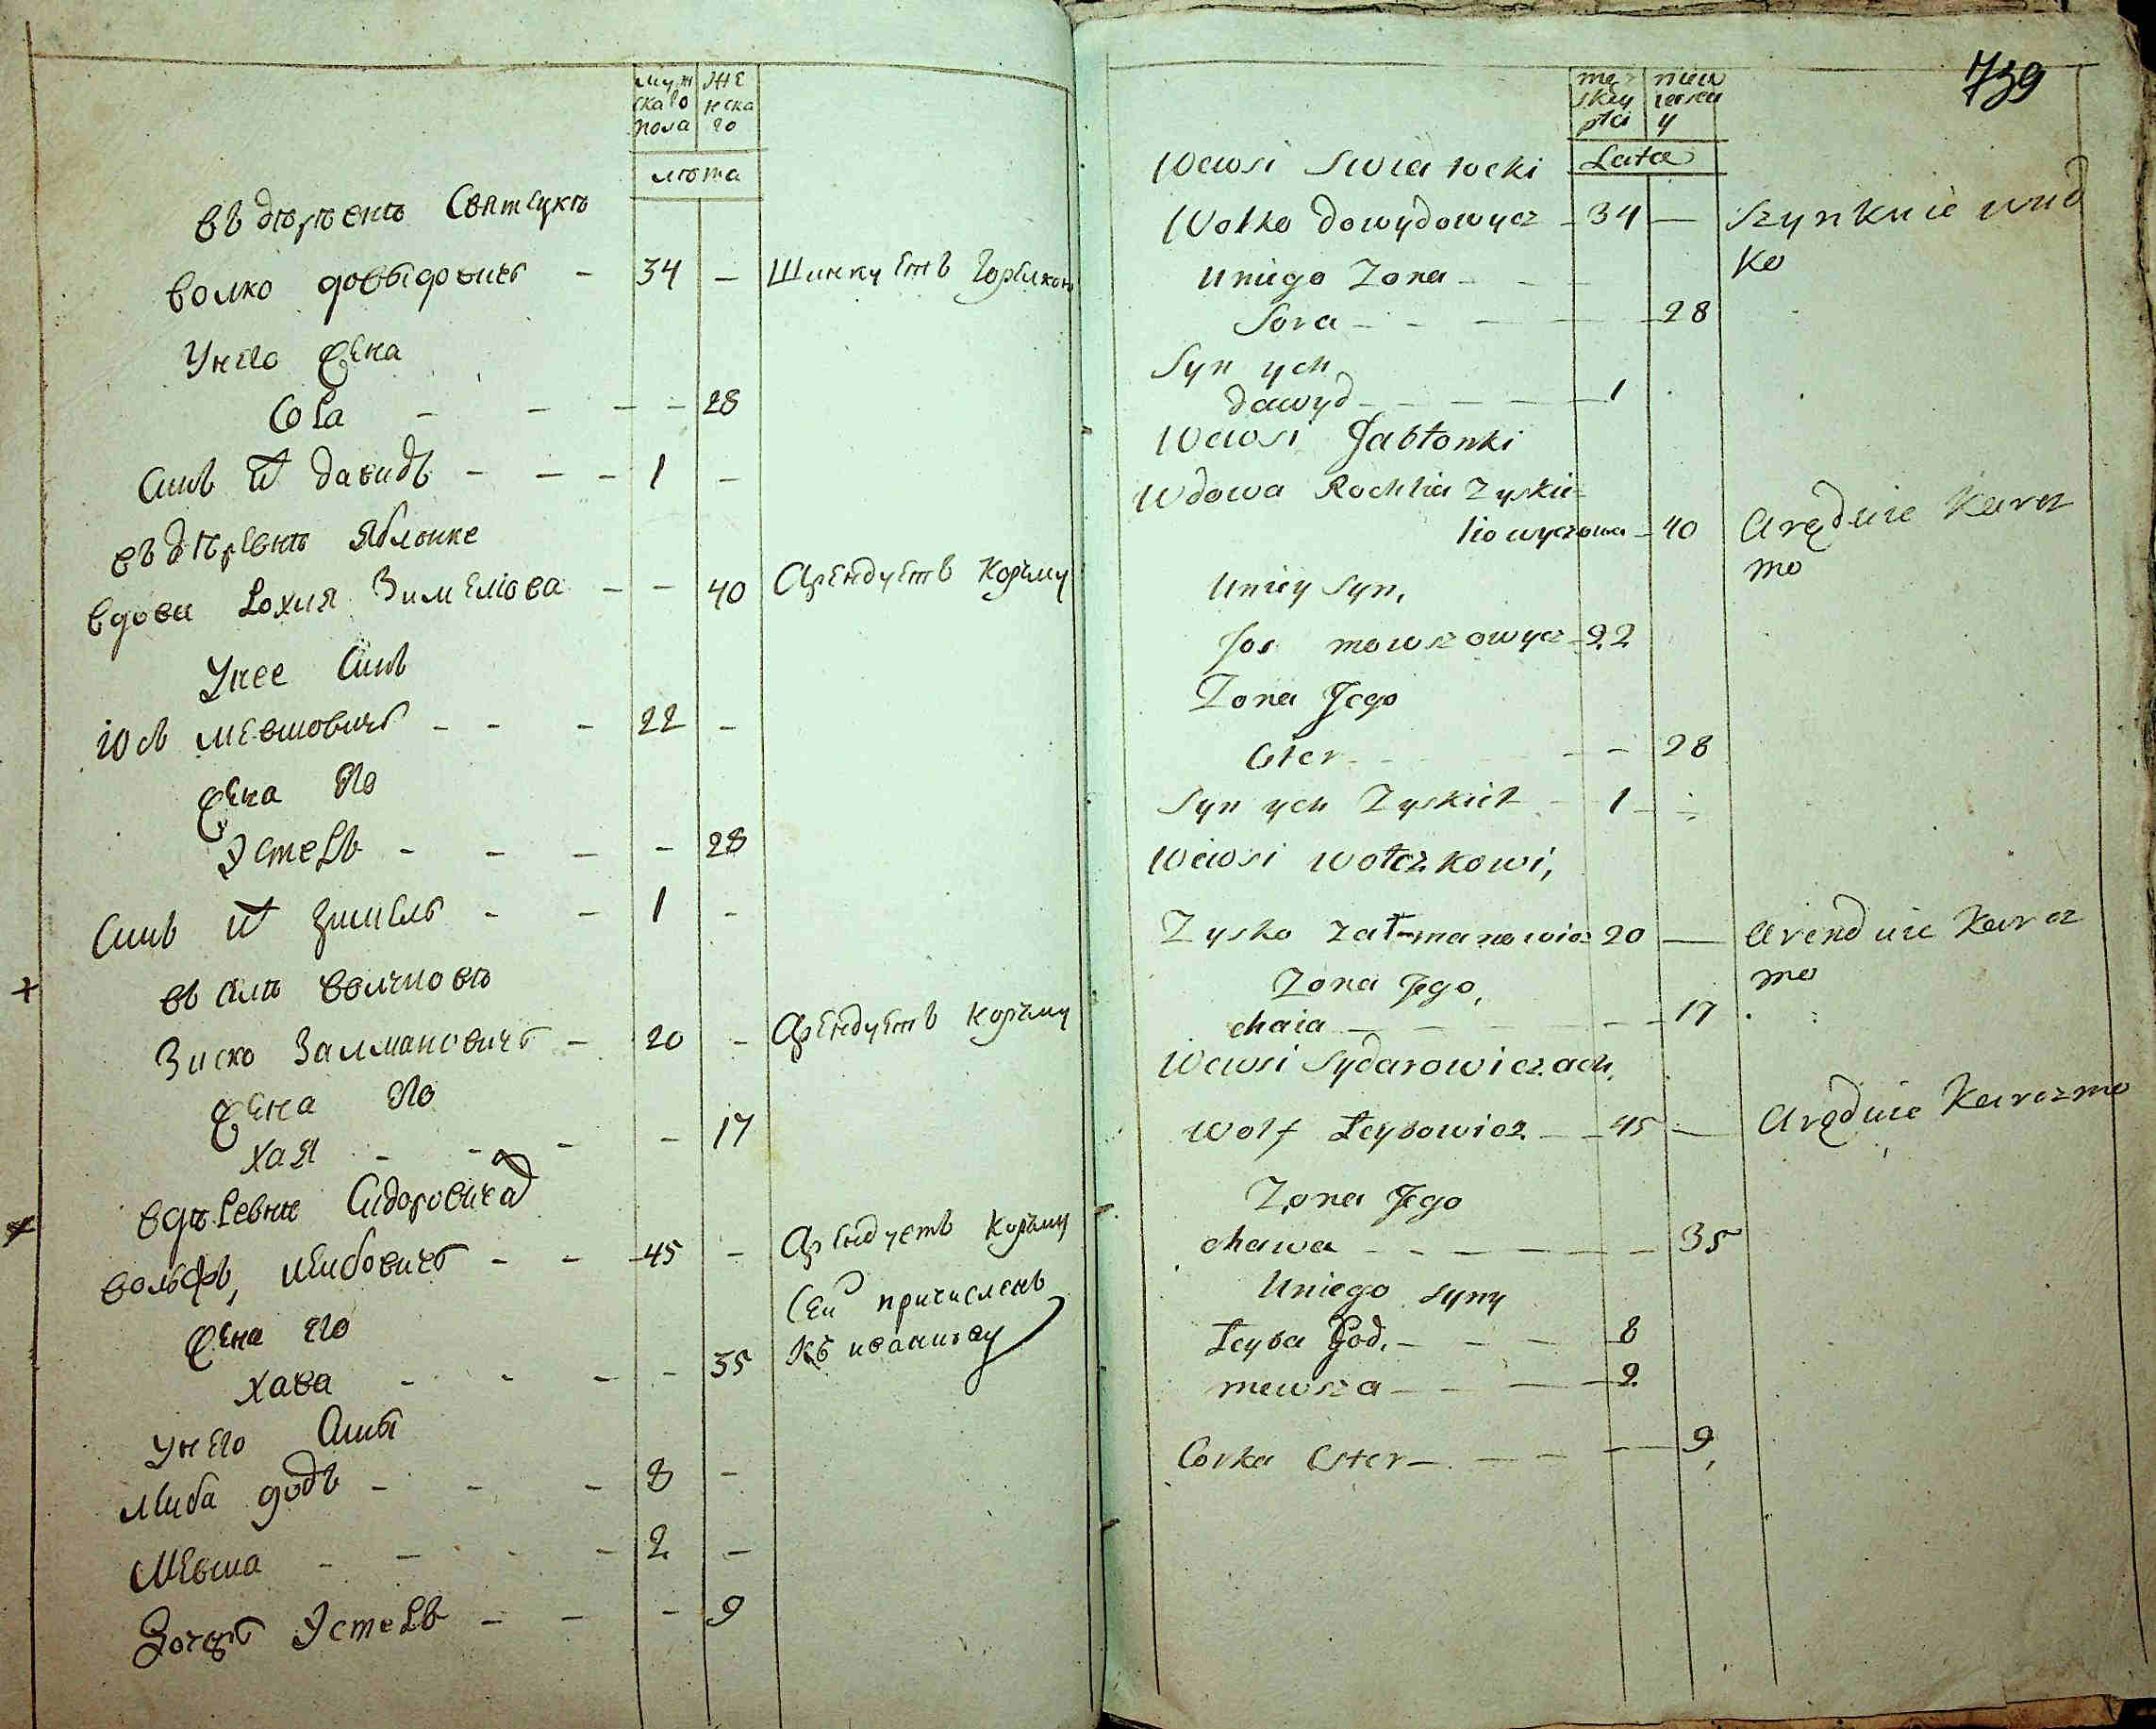 мужскаго пола
женскаго
лѣта
въ дѣревнѣ Святцкѣ
волко довыдовичъ - 34 - Шинкуетъ горѣлкою
У него жена
Сора - - - - 28
Сынъ их давидъ - - - 1 -
въ дѣревнѣ Яблонке
вдова Рохля Зимеліова - - 40 Арендуетъ Корчму
У нее Сынъ
Іосъ мевшовичъ - - - 22 -
жена его
Эстеръ - - - - 28
Сынъ их зимель - - 1 -
въ селѣ волчковѣ
Зиско Залмановичъ - 20 - Арендуетъ корчму
жена его
хая - - - - 17
в дѣревнѣ Сидоровичах
вольфъ, лейбовичъ - - 45 - Арендуетъ корчму
жена его
Сей причисленъ
хава - - - - 35 къ
У него Сыны
лейба годъ - - - 8 -
мевша - - - - 2 -
Дочеръ Эстеръ - - - 9
739
męzkiey płci
niewiesciey
Lata
Wewsi Swiatocki
Wolko dowydowycz - 34 — Szynkuie wud
ko
Uniego Zona - - -
Sora - - - - 28
Syn ych
dawyd - - - - - 1
Wewsi Jabłonki
Wdowa Rochlia Zyskie=
liowyczowa - 40 Aręduie Karcz
mo
Uniey Syn,
Jos mowszowycz - 22
Zona Jego
Ester - - - - 28
Syn ych Zyskiel - 1 -
Wewsi Wołczkowi,
Zysko Załmanowicz 20 — Arenduie Karcz
mo
Zona Jego,
chaia - - - - - 17
Wewsi Sydarowiczach,
Wolf Leybowicz - - 45 — Aręduie Karczmo
Zona Jego
chawa - - - - - - 35
Uniego syny
Leyba God. - - - 8
mewsza - - - - 2
Corka Ester - - - - 9